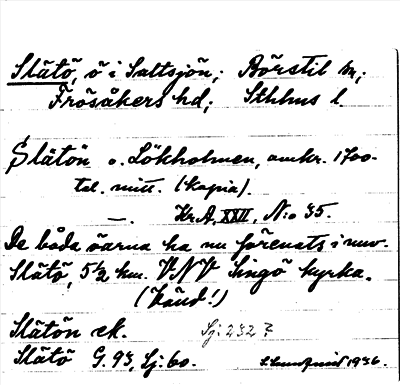 Slätö, ö i Saltsjön; Börstil sn;
Frösåkers hd; Sthlms l.
Slätön o. Lökholmen, omkr. 1700-
tal. mitt. (kopia).
—. Kr.A. XXII, N:o 35.
De båda öarna ha nu förenats i nuv.
Slätö, 5½ km. V.NV Singö kyrka.
(Ländl)
Slätön ek. Sj: 232 7
Slätö G. 93, Sj: 60.
1936.